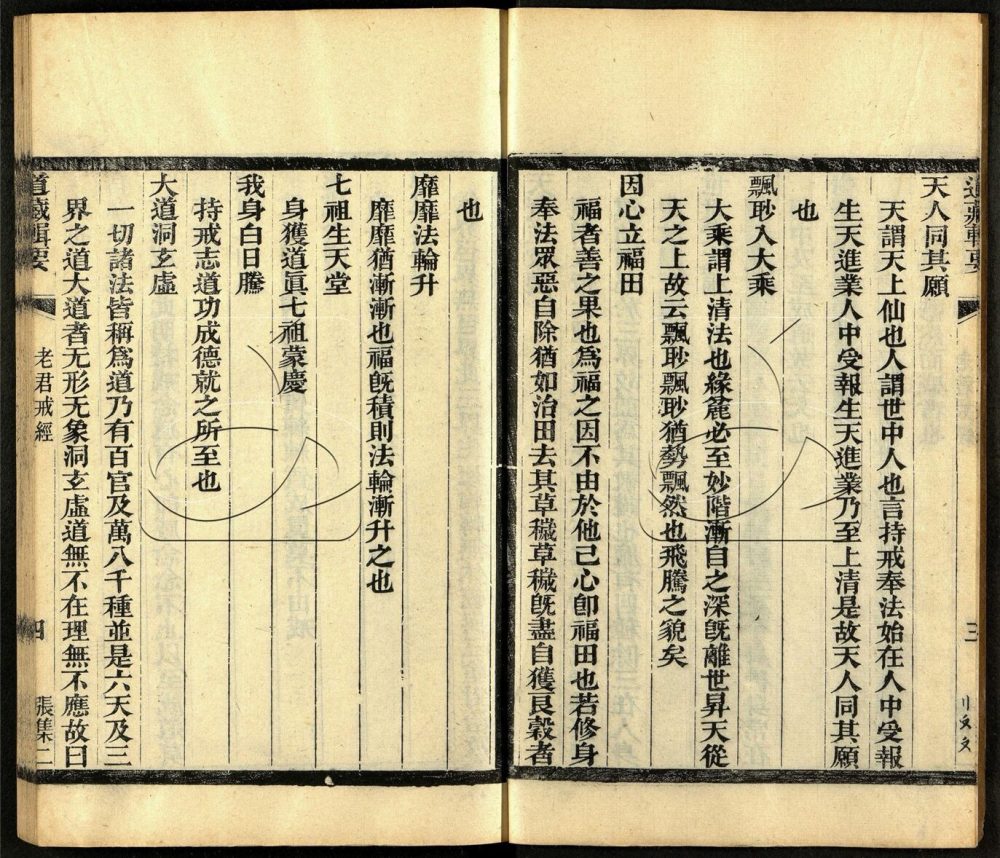 天人同其願
天謂天上仙也人謂世中人也言持戒奉法始在人中受報
生天進業人中受報生天進業乃至上清是故天人同其願
也
飄眇入大乘
大乘謂上清法也緣麄必至妙階漸自之深旣離世昇天從
天之上故云飄眇飄眇猶勢飄然也飛騰之貌矣
因心立福田
福者善之果也爲福之因不由於他己心卽福田也若修身
奉法眾惡自除猶如治田去其草穢草穢旣盡自獲良穀者
三
也
靡靡法輪升
靡靡猶漸漸也福旣積則法輪漸升之也
七祖生天堂
身獲道眞七祖蒙慶
我身白日騰
持戒志道功成德就之所至也
大道洞玄虛
一切諸法皆稱爲道乃有百官及萬八千種並是六天及三
界之道大道者无形无象洞玄虛道無不在理無不應故曰
道藏輯要 老君戒經 四 張集二